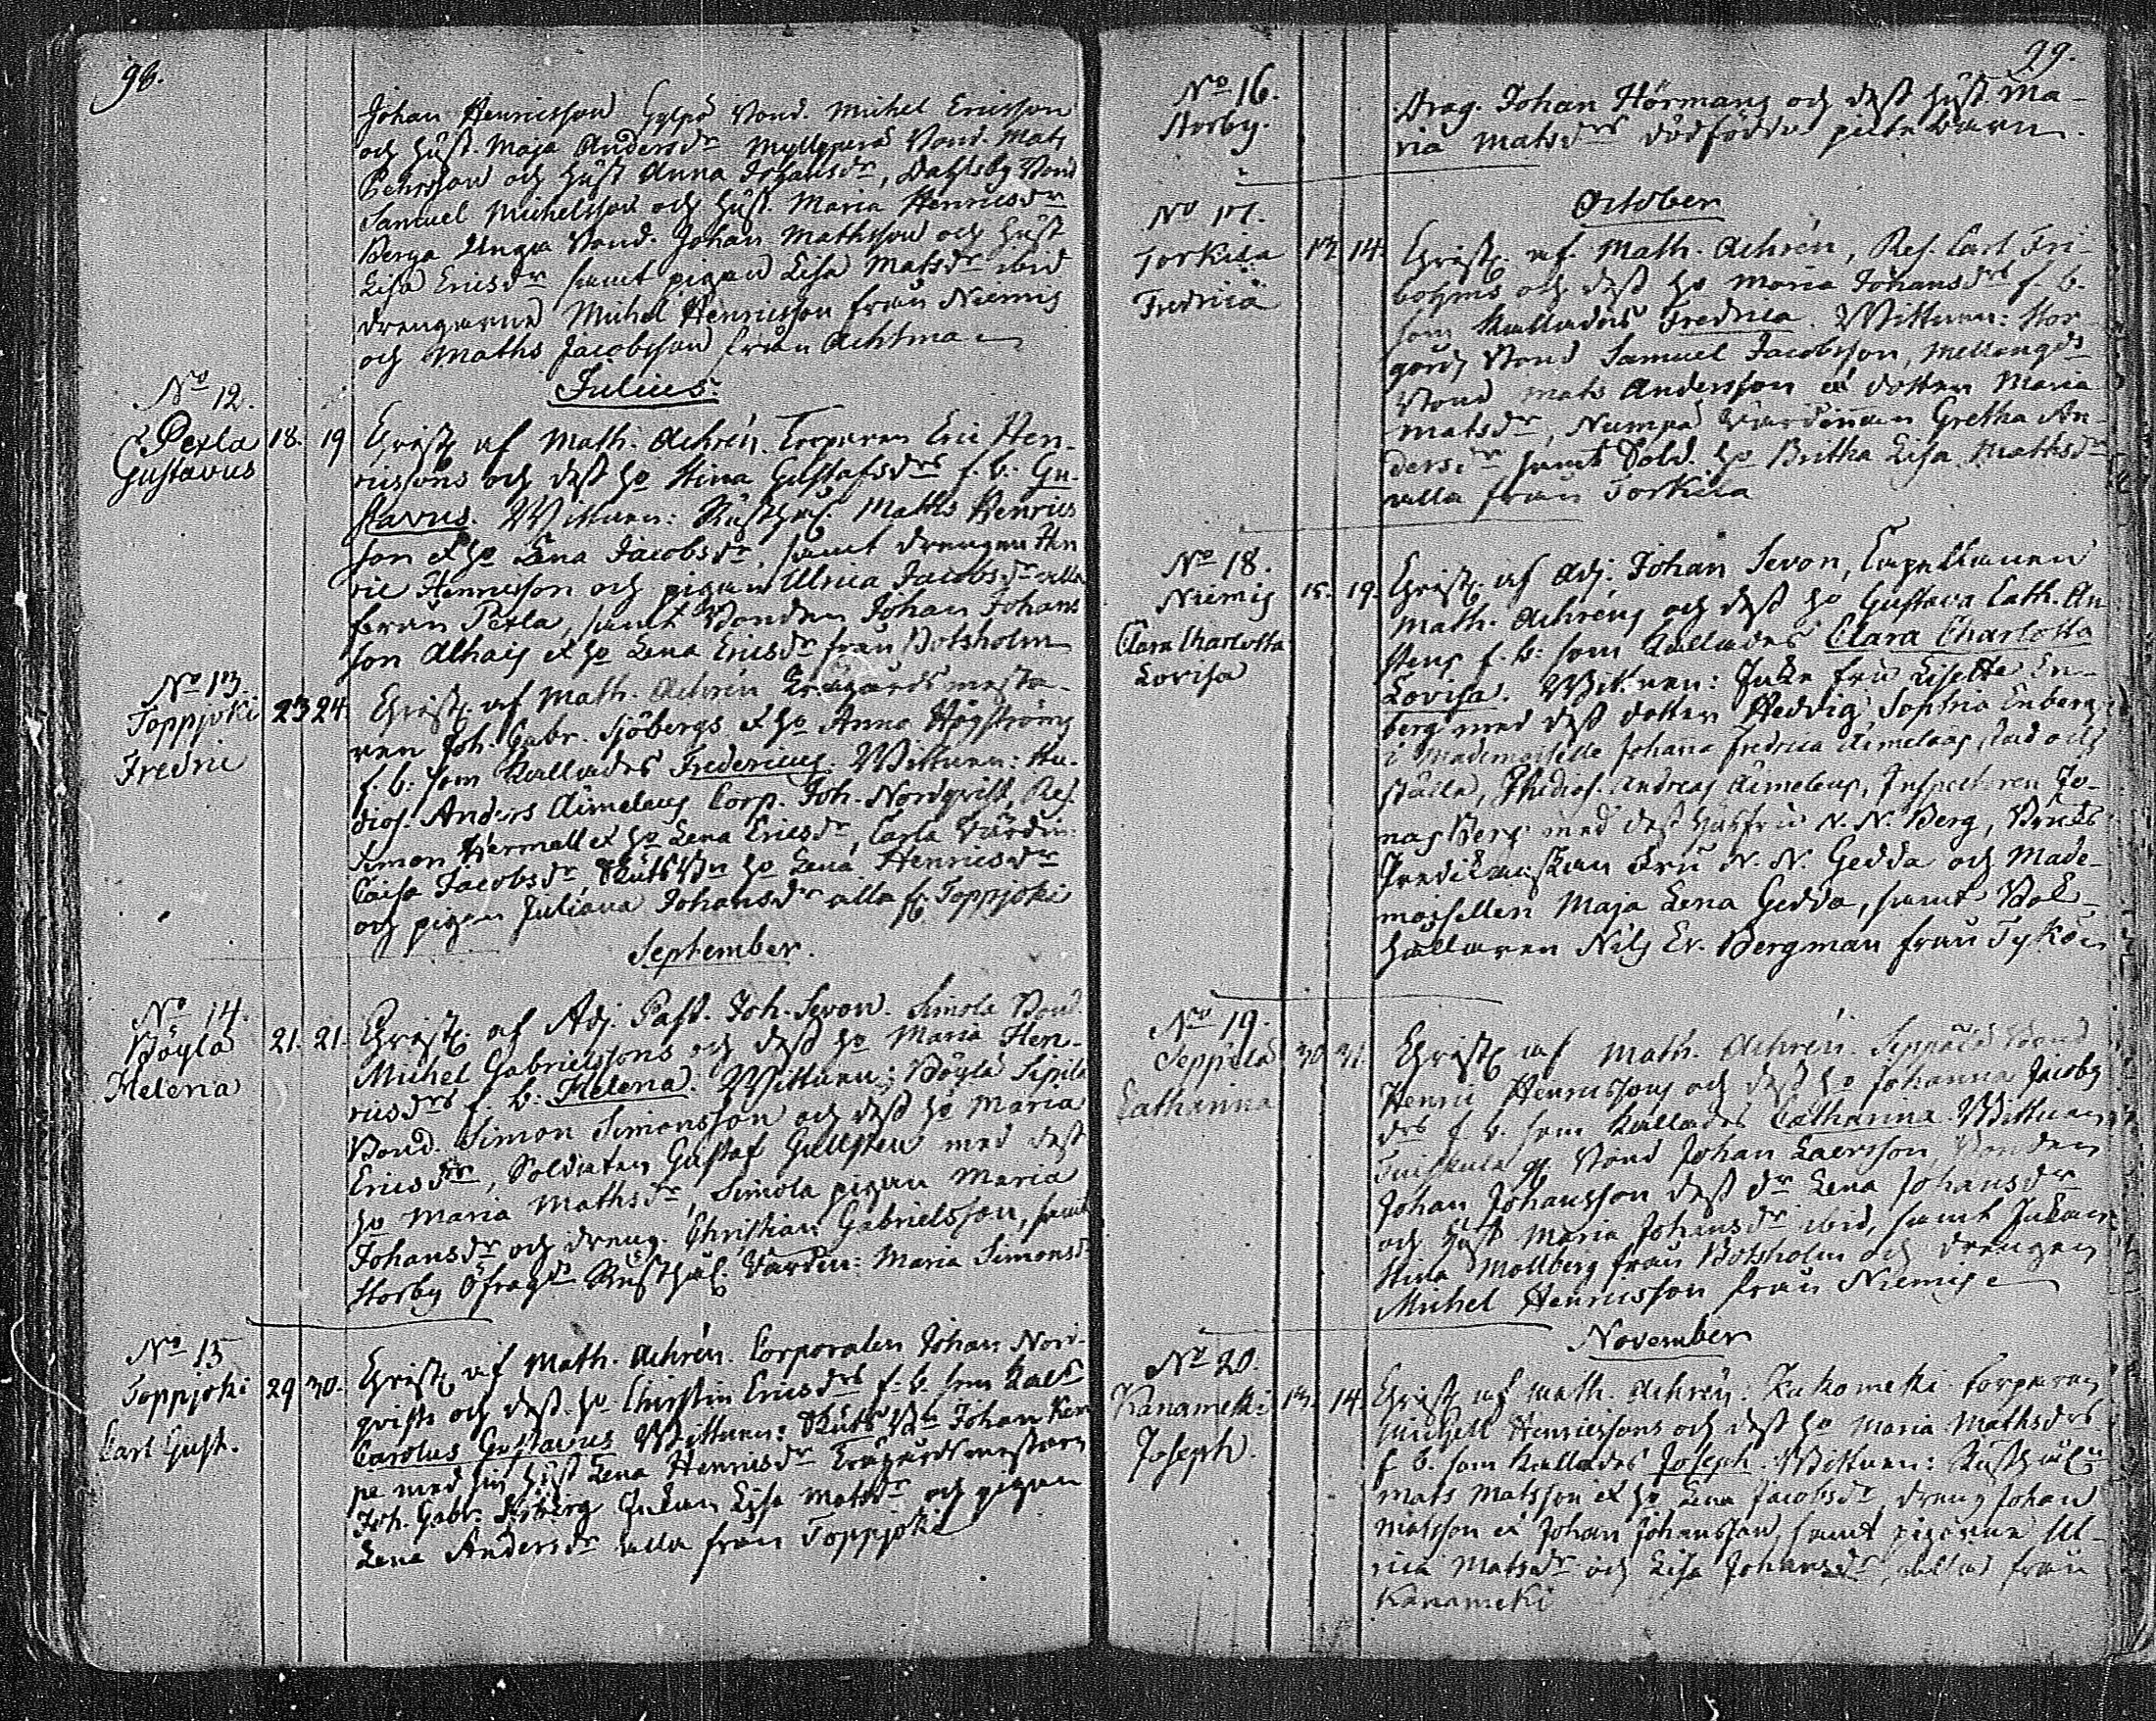 98.
Johan Henricsson Gylpö Bond. Michel Ericsson
och Hust. Maja Andersdr Myllyperä Bond. Mats
Pehrsson och Hust Anna Johansdr, Dahlsby Bond
Samuel Michelsson och Hust. Maria Henricsdr
Berga Unga Bond. Johan Mathsson och Hust
Lisa Ericsdr samt pigan Lisa Matsdr ibid
drengarne Michel Henricsson från Niemis
och Maths Jacobsson från Achtma
Julius.
No 12.
Pexla 18. 19 Christ. af Math. Achrén. Torparen Eric Hen-
Gustavus
ricssons och dess ho Stina Gustafsdrs f. b. Gu-
stavus. Wittnen: Rusth. Maths Henrics
son et ho Lena Jacobsdr, samt drengen Hen
ric Henricsson och pigan Ulrica Jacobsdr alla
från Pexla, samt Bonden Johan Johans
son Alhais et ho Lena Ericsdr från Botsholm
No 13.
Toppjoki 23 24. Christ. af Math. Achrén Trägårdsmesta-
Fredric
ren Joh. Gabr. Sjöbergs et ho Anna Högströms
f. b. som kallades Fredericus. Wittnen: Stu-
dios. Anders Aimelaus Corp. Joh. Nordqvist, Ref.
Simon Hermall et ho Lena Ericsdr, Carla Värdin:
Caisa Jacobsdr ho Lena Henricsdr
och pigan Juliana Johansdr alla fr. Toppjoki
September.
No 14.
Böylä 21. 21. Christ. af Adj. Past. Joh. Sevon. Simola Bond.
Helena
Michel Gabrielssons och dess ho Maria Hen-
ricsdrs f. b. Helena. Wittnen: Böylä Sipilä
Bond. Simon Simonsson och dess ho Maria
Ericsdr, Soldaten Gustaf Gullsten med dess
ho Maria Mathsdr, Simola pigan Maria
Johansdr och dreng. Christian Gabrielsson, samt
Storby Öfragds Rusthål. Värdin: Maria Simonsd
No 15
Toppjoki 29 30. Christ. af Math. Achrén. Corporalen Johan Nord-
Carl Gust.
qvists och dess ho Christin Ericsdrs f. b. som kall
Carolus Gustavus Wittnen: Johan Kem
pe med sin Hust Lena Henricsdr Trägårdsmestarn
Joh. Gabr. Siöberg Enkan Lisa Matsdr och pigan
Lena Andersdr alla från Toppjoki
99.
No 16.
Storby. Drag. Johan Hörmans och dess Hust Ma-
ria Matsdrs dödfödde pilte barn.
October
No 17.
Torkila 13 14. Christ. af Math. Achrén, Ref. Carl Fri-
Fredrica
bohms och dess ho Maria Johansdrs f. b.
som kallades Fredrica. Wittnen: Stor
gårds Bond Samuel Jacobsson, Mellangds
Bond Mats Andersson et dotter Maria
Matsdr, Numpä Värdinnan Gretha An-
dersdr samt Sold. ho Britha Lisa Mathsdr
alla från Torkila
No 18.
Niemis 15. 19. Christ. af Adj. Johan Sevon, Capellanen
Clara Charlotta
Lovisa
Math. Achréns och dess ho Gustava Cath. An
stens f. b: som kallades Clara Charlotta
Lovisa. Wittnen: Enke fru Lisette En-
berg med dess dotter Hedvig Sophia Enberg
i Mademoiselle Johanna Fredrica Aimelaus stad och
ställe, Studios. Andreas Aimelaus, Inspectoren Jo-
nas Berg med dess Husfru N. N. Berg, Bruks
Predikanskan Fru N. N. Gedda och Made-
moisellen Maja Lena Gedda, samt Bok-
hållaren Nils Er. Bergman från Tykö
No 19.
Seppälä 30 31. Christ. af Math. Achrén. Seppälä Bond
Catharina
Henric Henricssons och dess ho Johanna Jacobs
drs f. b. som kallades Catharina Wittnen
Bond Johan Larsson, Bonden
Johan Johansson dess dr Lena Johansdr
och Hust Maria Johansdr ibid, samt Enkan
Stina Mollberg från Botsholm och drengen
Michel Henricsson från Niemis
November
No 20.
Kanameki 13. 14. Christ af Math. Achrén. Kukomeki Torparen
Joseph.
Michell Henricssons och dess ho Maria Mathsdrs
f. b. som kallades Joseph. Wittnen: Rusthål
Mats Matsson et ho Lena Jacobsdr, dreng Johan
Matsson et Johan Johansson, samt pigorna Ul-
rica Matsdr och Lisa Johansdr, alla från
Kanameki